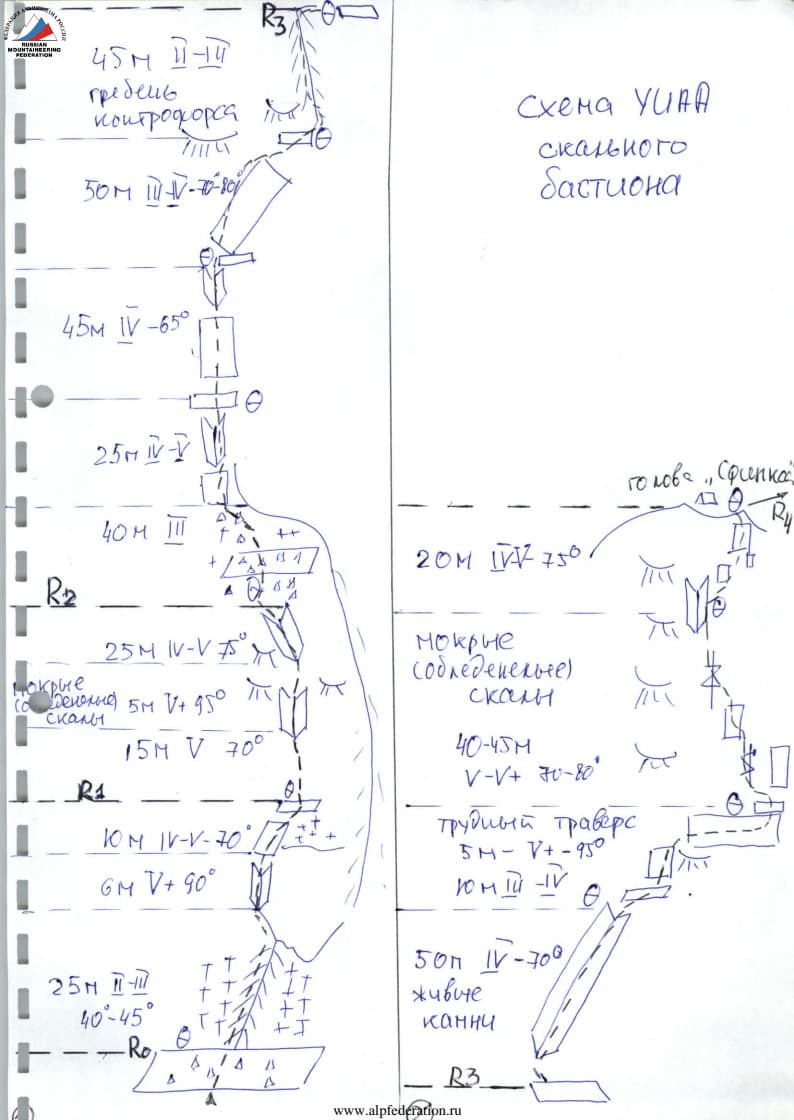 ФЕДЕРАЦИЯ АЛЬПИНИЗМА РОССИИ
RUSSIAN
MOUNTAINEERING
FEDERATION
R3
45м II-III
гребень
контрфорса
50м III-IV-70°-80°
45м IV-65°
25м IV-V
40м III
R2
25м IV-V 75°
мокрые
скалы
5м V+ 95°
15м V 70°
R1
10м IV-V-70°
6м V+ 90°
25м II-III
40°-45°
R0
Схема УИАА
скального
бастиона
голова „Сфинкса"
R4
20м IV-V 75°
мокрые
(обледенелые)
скалы
40-45м
V-V+ 70-80°
трудный траверс
5м - V+ -95°
10м III-IV
50м IV-70°
живые
камни
R3
www.alpfederation.ru